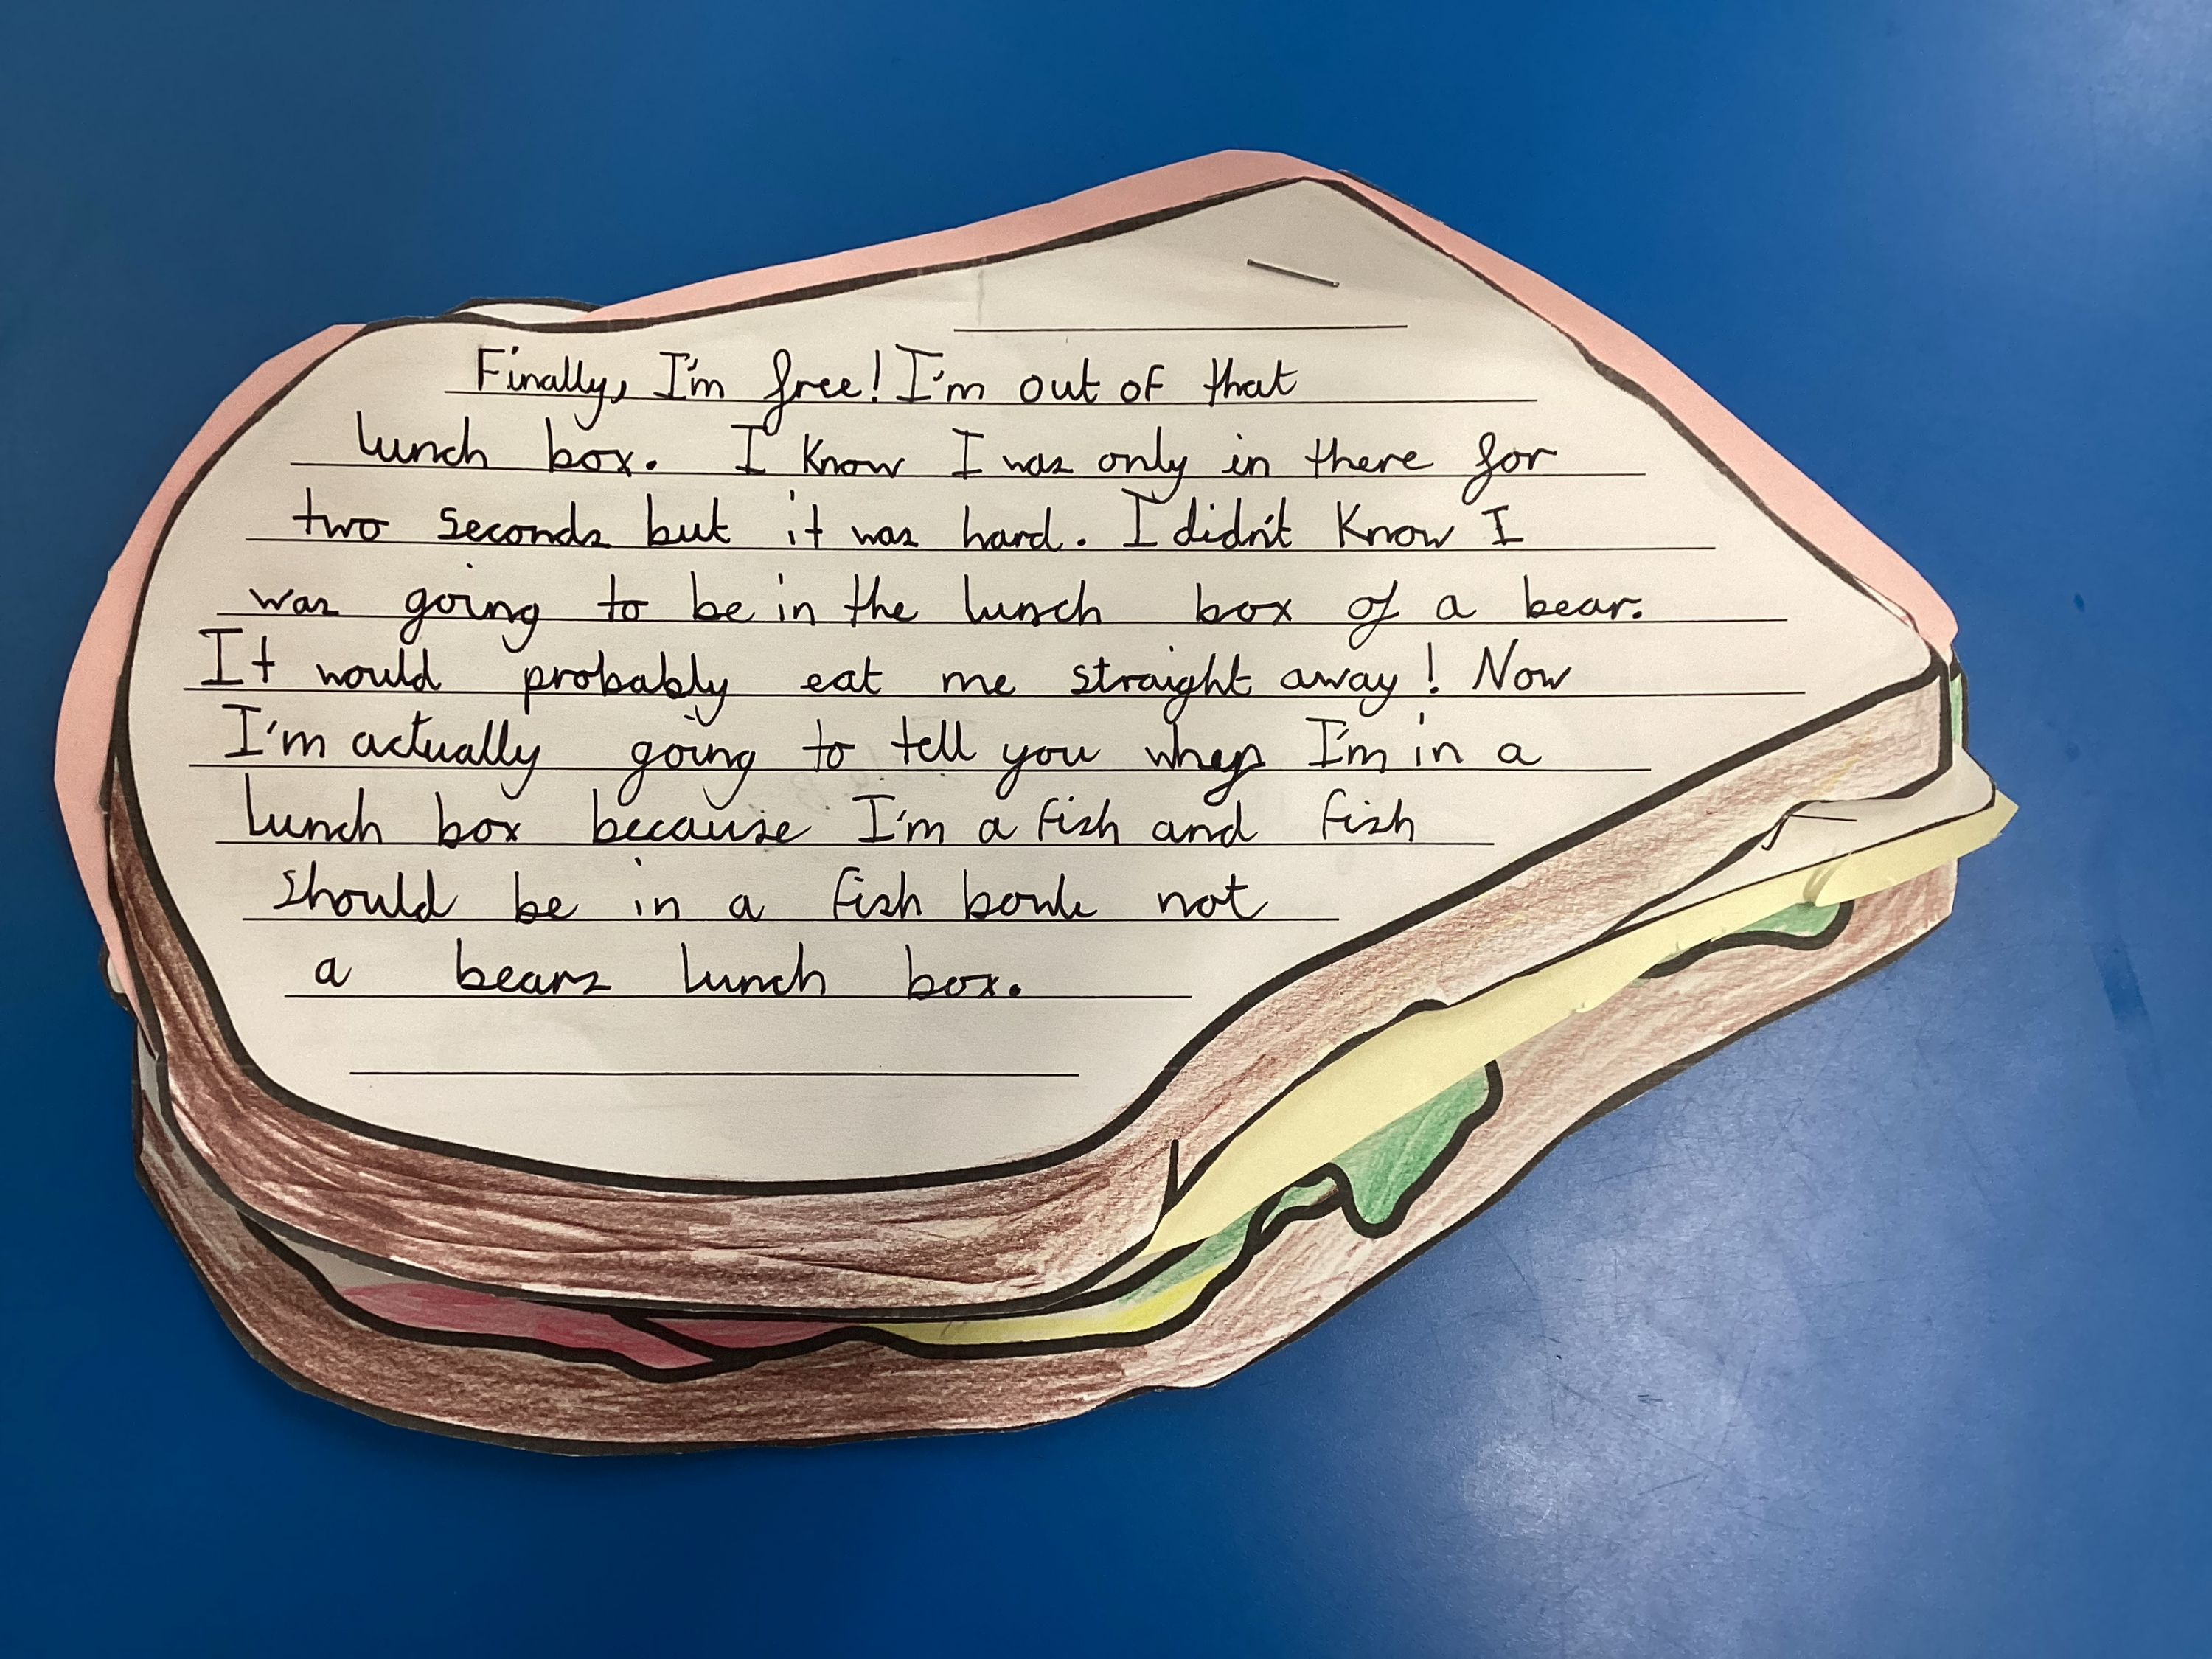 Finally, I'm free! I'm out of that
lunch box. I know I was only in there for
two seconds but it was hard. I didn't know I
was going to be in the lunch box of a bear.
It would probably eat me straight away! Now
I'm actually going to tell you when I'm in a
lunch box because I'm a fish and fish
should be in a fish not
a bears lunch box.